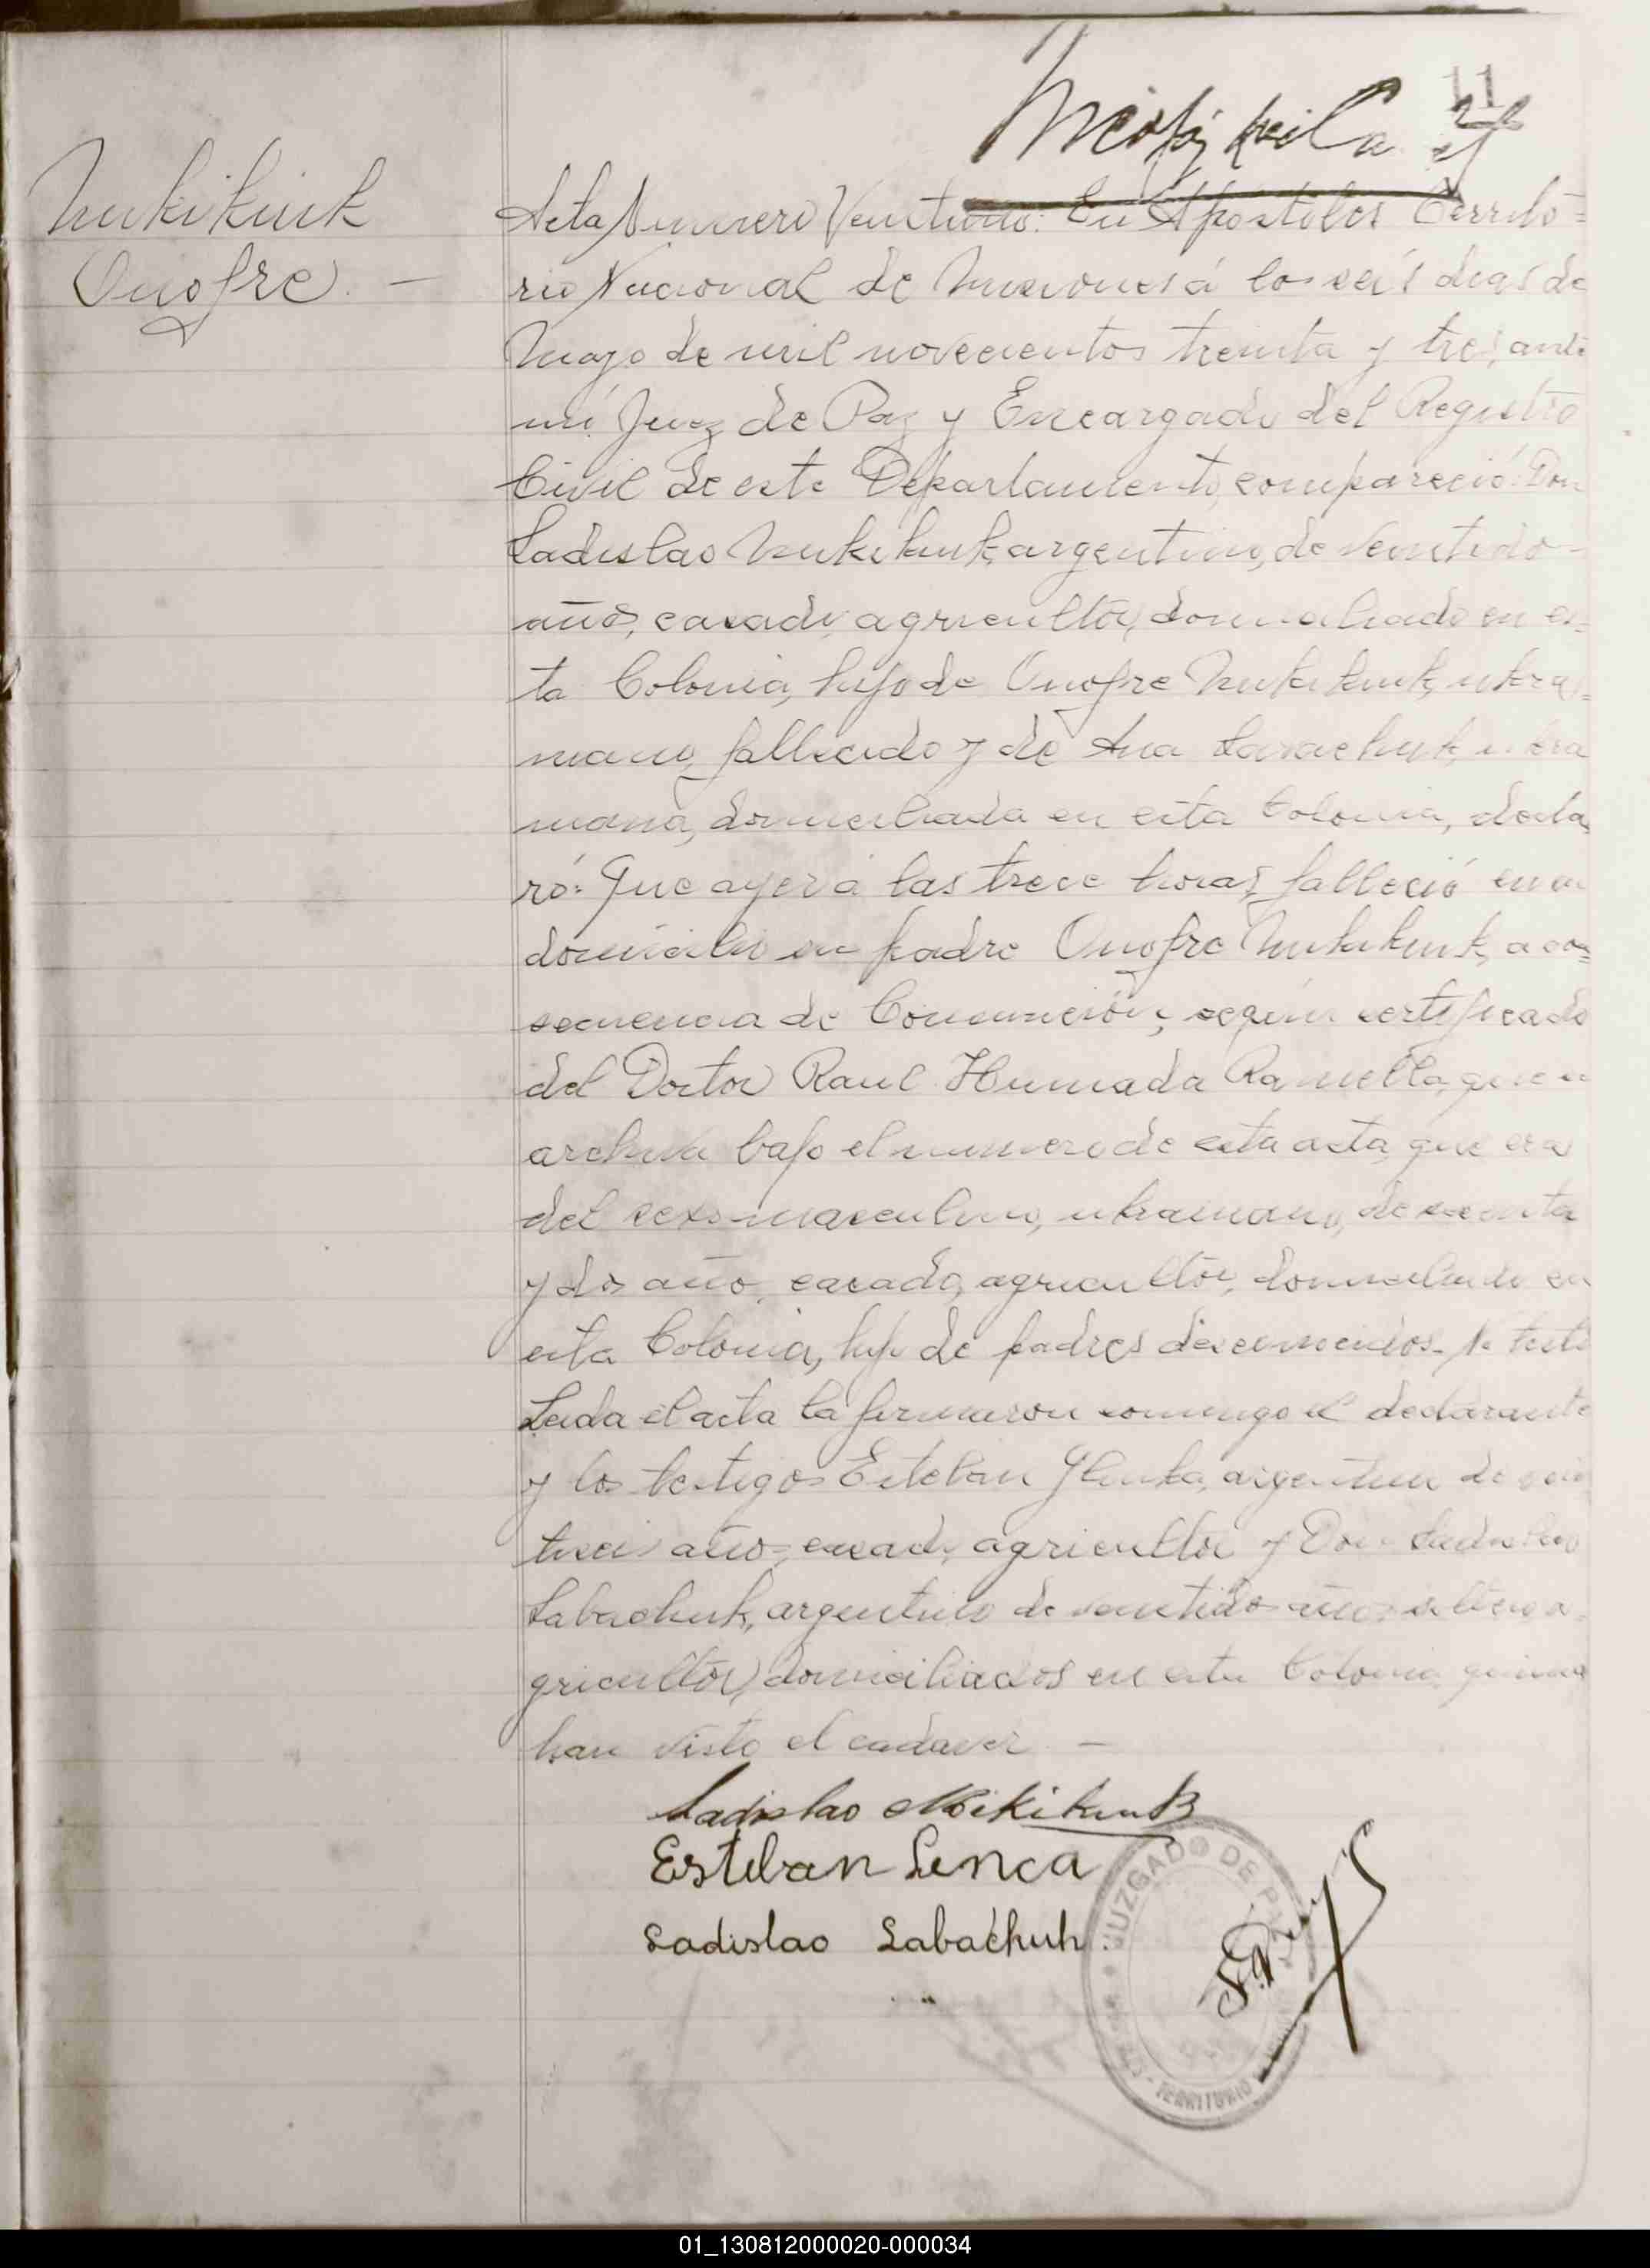 11
Mukikiuk
Onofre. —
Acta Numero Ventiuno: En Apostoles Territo=
rio Nacional de Misiones á los seis dias de
Mayo de mil novecientos treinta y tres, ante
mi Juez de Paz y Encargado del Registro
Civil de este Departamento, compareció: Don
Ladislao Mukikiuk, argentino, de ventidos
años, casado, agricultor, domiciliado en es=
ta Colonia, hijo de Onofre Mukikiuk, ukra=
niano, fallecido y de Ana ukra
niana, domiciliada en esta Colonia, decla
ró: Que ayer á las trece horas, falleció en su
domicilio su padre Onofre Mukikiuk, a con=
secuencia de según certificado
del Doctor Raul Humada Ramella, que se
archiva bajo el numero de esta acta, que era
del sexo masculino, ukraniano, de sesenta
y dos años, casado, agricultor, domiciliado en
esta Colonia, hijo de padres desconocidos. No testó
Leida el acta la firmaron conmigo el declarante
y los testigos Esteban argentino de vein
tiseis años, casado, agricultor y Don Ladislao
Labachuk, argentino de ventidos años, soltero, a=
gricultor, domiciliados en esta Colonia, quienes
han visto el cadaver —
Ladislao Mikikiuk
Esteban Lenca
Ladislao Labachuk
JUZGADO DE PAZ
TERRITORIO
01_130812000020-000034